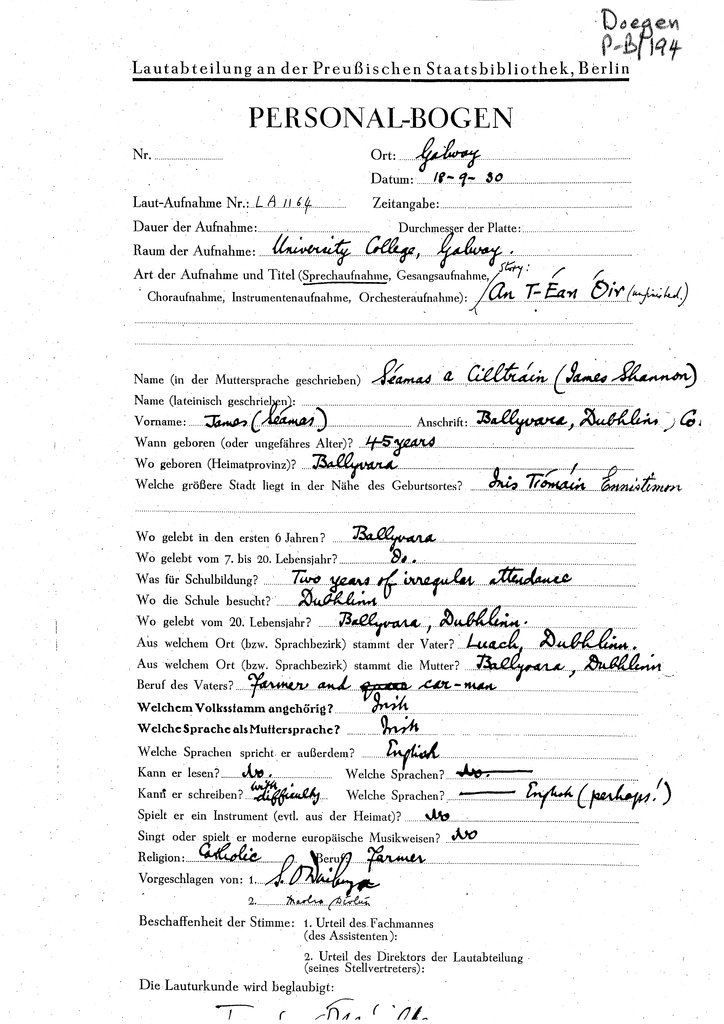 Doegen
P-B/194
Lautabteilung an der Preußischen Staatsbibliothek, Berlin
PERSONAL-BOGEN
Nr. Ort: Galway
Datum: 18-9-30
Laut-Aufnahme Nr.: LA 1164 Zeitangabe:
Dauer der Aufnahme: Durchmesser der Platte:
Raum der Aufnahme: University College, Galway.
Art der Aufnahme und Titel (Sprechaufnahme, Gesangsaufnahme, Story:
Choraufnahme, Instrumentenaufnahme, Orchesteraufnahme): An T-Éan Óir (unfinished.)
Name (in der Muttersprache geschrieben) Séamas a Cilltráin (James Shannon)
Name (lateinisch geschrieben):
Vorname: James (Séamas) Anschrift: Ballyvara, Dubhlinn, Co.
Wann geboren (oder ungefähres Alter)? 45 years
Wo geboren (Heimatprovinz)? Ballyvara
Welche größere Stadt liegt in der Nähe des Geburtsortes? Inis Tíomáin Ennistimon
Wo gelebt in den ersten 6 Jahren? Ballyvara
Wo gelebt vom 7. bis 20. Lebensjahr? Do.
Was für Schulbildung? Two years of irregular attendance
Wo die Schule besucht? Dubhlinn
Wo gelebt vom 20. Lebensjahr? Ballyvara, Dubhlinn.
Aus welchem Ort (bzw. Sprachbezirk) stammt der Vater? Luach, Dubhlinn.
Aus welchem Ort (bzw. Sprachbezirk) stammt die Mutter? Ballyvara, Dubhlinn
Beruf des Vaters? Farmer and car-man
Welchem Volksstamm angehörig? Irish
Welche Sprache als Muttersprache? Irish
Welche Sprachen spricht er außerdem? English
Kann er lesen? No. Welche Sprachen? No.
Kann er schreiben? with difficulty Welche Sprachen? English (perhaps!)
Spielt er ein Instrument (evtl. aus der Heimat)? No
Singt oder spielt er moderne europäische Musikweisen? No
Religion: Catholic Beruf: Farmer
Vorgeschlagen von: 1.
2.
Beschaffenheit der Stimme: 1. Urteil des Fachmannes
(des Assistenten):
2. Urteil des Direktors der Lautabteilung
(seines Stellvertreters):
Die Lauturkunde wird beglaubigt: